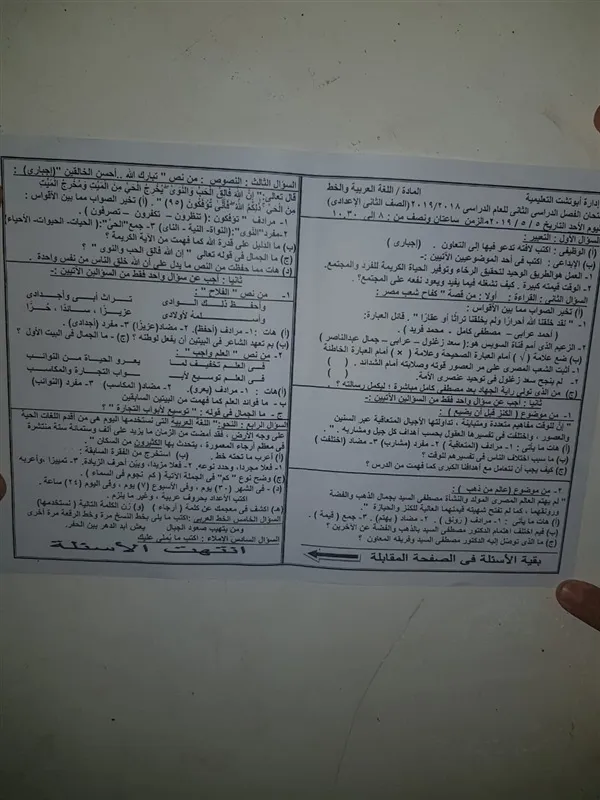 إدارة أبوتشت التعليمية
المادة / اللغة العربية والخط
امتحان الفصل الدراسى الثانى للعام الدراسى ٢٠١٩/٢٠١٨ (الصف الثانى الإعدادى)
يوم الأحد التاريخ ٥ / ٥ / ٢٠١٩ - الزمن ساعتان ونصف من : ٨ الى ١٠.٣٠
السؤال الأول : التعبير :
(أ) الوظيفى : اكتب لافتة تدعو فيها إلى التعاون . (إجبارى)
(ب) الإبداعى : اكتب فى أحد الموضوعين الآتيين :-
١- العمل هو الطريق الوحيد لتحقيق الرخاء وتوفير الحياة الكريمة للفرد والمجتمع.
٢- الوقت قيمته كبيرة . كيف تشغله فيما يفيد ويعود نفعه على المجتمع؟ .
السؤال الثانى : القراءة : أولا : من قصة " كفاح شعب مصر :
(أ) تخير الصواب مما بين الأقواس :
١- " لقد خلقنا الله أحرارًا ولم يخلقنا تراثًا أو عقارًا " . قائل العبارة:
( أحمد عرابى – مصطفى كامل - محمد فريد ) .
٢- الزعيم الذى أمم قناة السويس هو:( سعد زغلول – عرابى – جمال عبدالناصر )
(ب) ضع علامة ( √ ) أمام العبارة الصحيحة وعلامة ( × ) أمام العبارة الخاطئة
١- أثبت الشعب المصرى على مر العصور قوته وصلابته أمام الشدائد . ( )
٢- لم ينجح سعد زغلول فى توحيد عنصرى الأمة . ( )
(ج) من الذى تولى راية الجهاد بعد مصطفى كامل مباشرة ؛ ليكمل رسالته ؟
ثانيا : أجب عن سؤال واحد فقط من السؤالين الآتيين :-
١- من موضوع ( الكنز قبل أن يضيع ) :
" إن للوقت مفاهيم متعددة ومتباينة ، تداولتها الأجيال المتعاقبة عبر السنين
والعصور ، واختلفت فى تفسيرها العقول بحسب أهداف كل جيل ومشاربه . "
(أ) هات ما يأتى : ١- مرادف (المتعاقبة) ٢- مفرد (مشارب) ٣- مضاد (اختلفت)
(ب) ما سبب اختلاف الناس فى تفسيرهم للوقت؟
(ج) كيف يجب أن نتعامل مع أهدافنا الكبرى كما فهمت من الدرس ؟
٢- من موضوع (عالم من ذهب ) :
" لم يهتم العالم المصرى المولد والنشأة مصطفى السيد بجمال الذهب والفضة
ورونقهما ، كما لم تفتح شهيته قيمتهما العالية للكنز والحيازة "
(أ) هات ما يأتى : ١- مرادف ( رونق ) . ٢- مضاد ( يهتم ) . ٣- جمع ( قيمة ) .
(ب) فيم اختلف اهتمام الدكتور مصطفى السيد بالذهب والفضة عن الآخرين ؟
(ج) ما الذى توصل إليه الدكتور مصطفى السيد وفريقه المعاون ؟
بقية الأسئلة فى الصفحة المقابلة
السؤال الثالث : النصوص : من نص " تبارك الله .. أحسن الخالقين "(إجبارى) :
قال تعالى:" إن الله فالق الحب والنوى يخرج الحي من الميت ومخرج الميت
من الحي ذلكم الله فأنى تؤفكون (٩٥) " . (أ) تخير الصواب مما بين الأقواس :
١- مرادف "تؤفكون ": (تنظرون – تكفرون – تصرفون ) .
٢- مفرد "النوى": (النواة- النية - الناى) ٣- جمع "الحي":( الحيات- الحيوات- الأحياء)
(ب) ما الدليل على قدرة الله كما فهمت من الآية الكريمة ؟
(ج) ما الجمال فى قوله تعالى " إن الله فالق الحب والنوى " ؟
(د) هات مما حفظت من النص ما يدل على أن الله خلق الناس من نفس واحدة .
ثانيا : أجب عن سؤال واحد فقط من السؤالين الآتيين :-
١- من نص " الفلاح " :
تراث أبى وأجدادى وأحفظ ذلك الوادى
عزيزًا ، سائدًا ، حُرًّا أسلمه لأولادى
(أ) هات :١- مرادف (أحفظ) ٢- مضاد(عزيزا) ٣- مفرد (أجدادى).
(ب) بم تعهد الشاعر فى البيتين أن يفعل لوطنه ؟ (ج) - ما الجمال فى البيت الأول ؟
٢- من نص " العلم واجب " :
فى العلم تخفيف لما يعرو الحياة من النوائب
فى العلم توسيع لأبواب التجارة والمكاسب
(أ)هات : ١- مرادف (يعرو) ٢- مضاد( المكاسب) ٣- مفرد (النوائب)
ب - ما فوائد العلم كما فهمت من البيتين السابقين
ج - ما الجمال فى قوله : " توسيع لأبواب التجارة " ؟
السؤال الرابع : النحو:" اللغة العربية التى نستخدمها اليوم هى من أقدم اللغات الحية
على وجه الأرض ، فقد أمضت من الزمان ما يزيد على ألف وستمائة سنة منتشرة
فى معظم أرجاء المعمورة ، يتحدث بها الكثيرون من السكان "
(أ) أعرب ما تحته خط . (ب) استخرج من الفقرة السابقة :
١- فعلا مجردا، وحدد نوعه. ٢- فعلا مزيدًا، وبين أحرف الزيادة. ٣- تمييزا ،وأعربه
(ج) وضح نوع " كم" فى الجملة الآتية ( كم نُجوم فى السماء ) .
(د)- فى الشهر (٣٠) يوم ، وفى الأسبوع (٧) يوم ، وفى اليوم (٢٤) ساعة .
اكتب الأعداد بحروف عربية ، وغير ما يلزم .
(هـ) اكشف فى معجمك عن كلمة ( أرجاء ) (و) زن الكلمة التالية ( نستخدمها)
السؤال الخامس الخط العربى : اكتب ما يلى بخط النسخ مرة وخط الرقعة مرة أخرى
ومن يتهيب صعود الجبال يعش أبد الدهر بين الحفر.
السؤال السادس الإملاء : اكتب ما يُملى عليك
انتهت الأسئلة